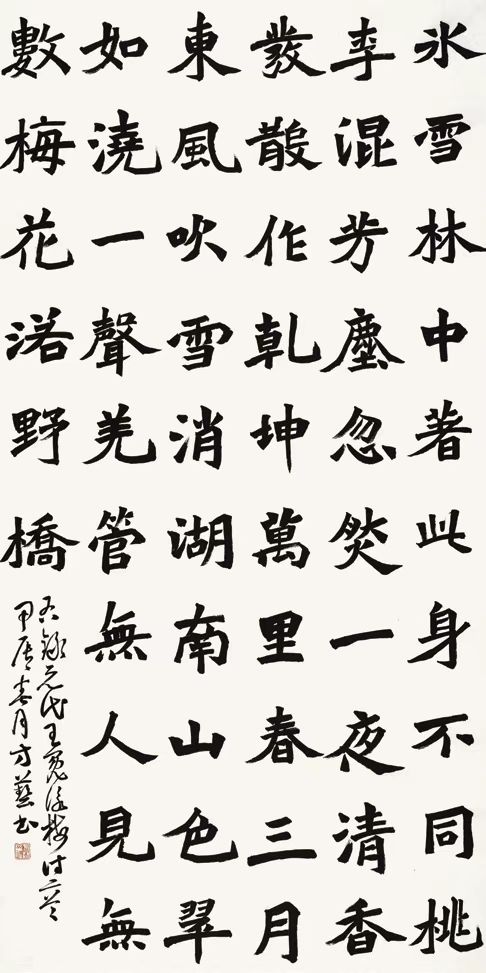 氷雪林中著此身不同桃
李混芳塵忽然一夜清香
發散作乾坤萬里春三月
東風吹雪消湖南山色翠
如澆一聲羌管無人見無
數梅花落野橋
右錄元代王冕詠梅詩二首
甲辰春月方藝书